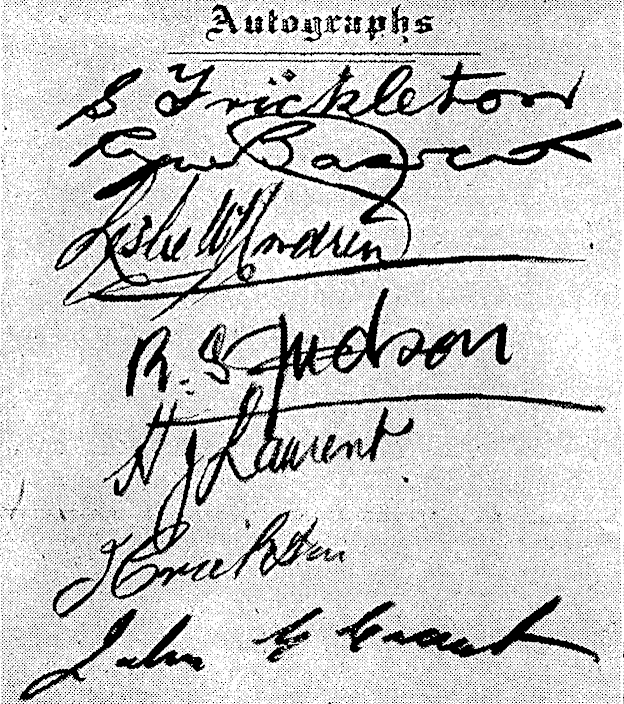 Autographs
S Frickleton
Cyril Bassett
Leslie W Andrew
R. S Judson
H J Laurent
J Crichton
John G Grant